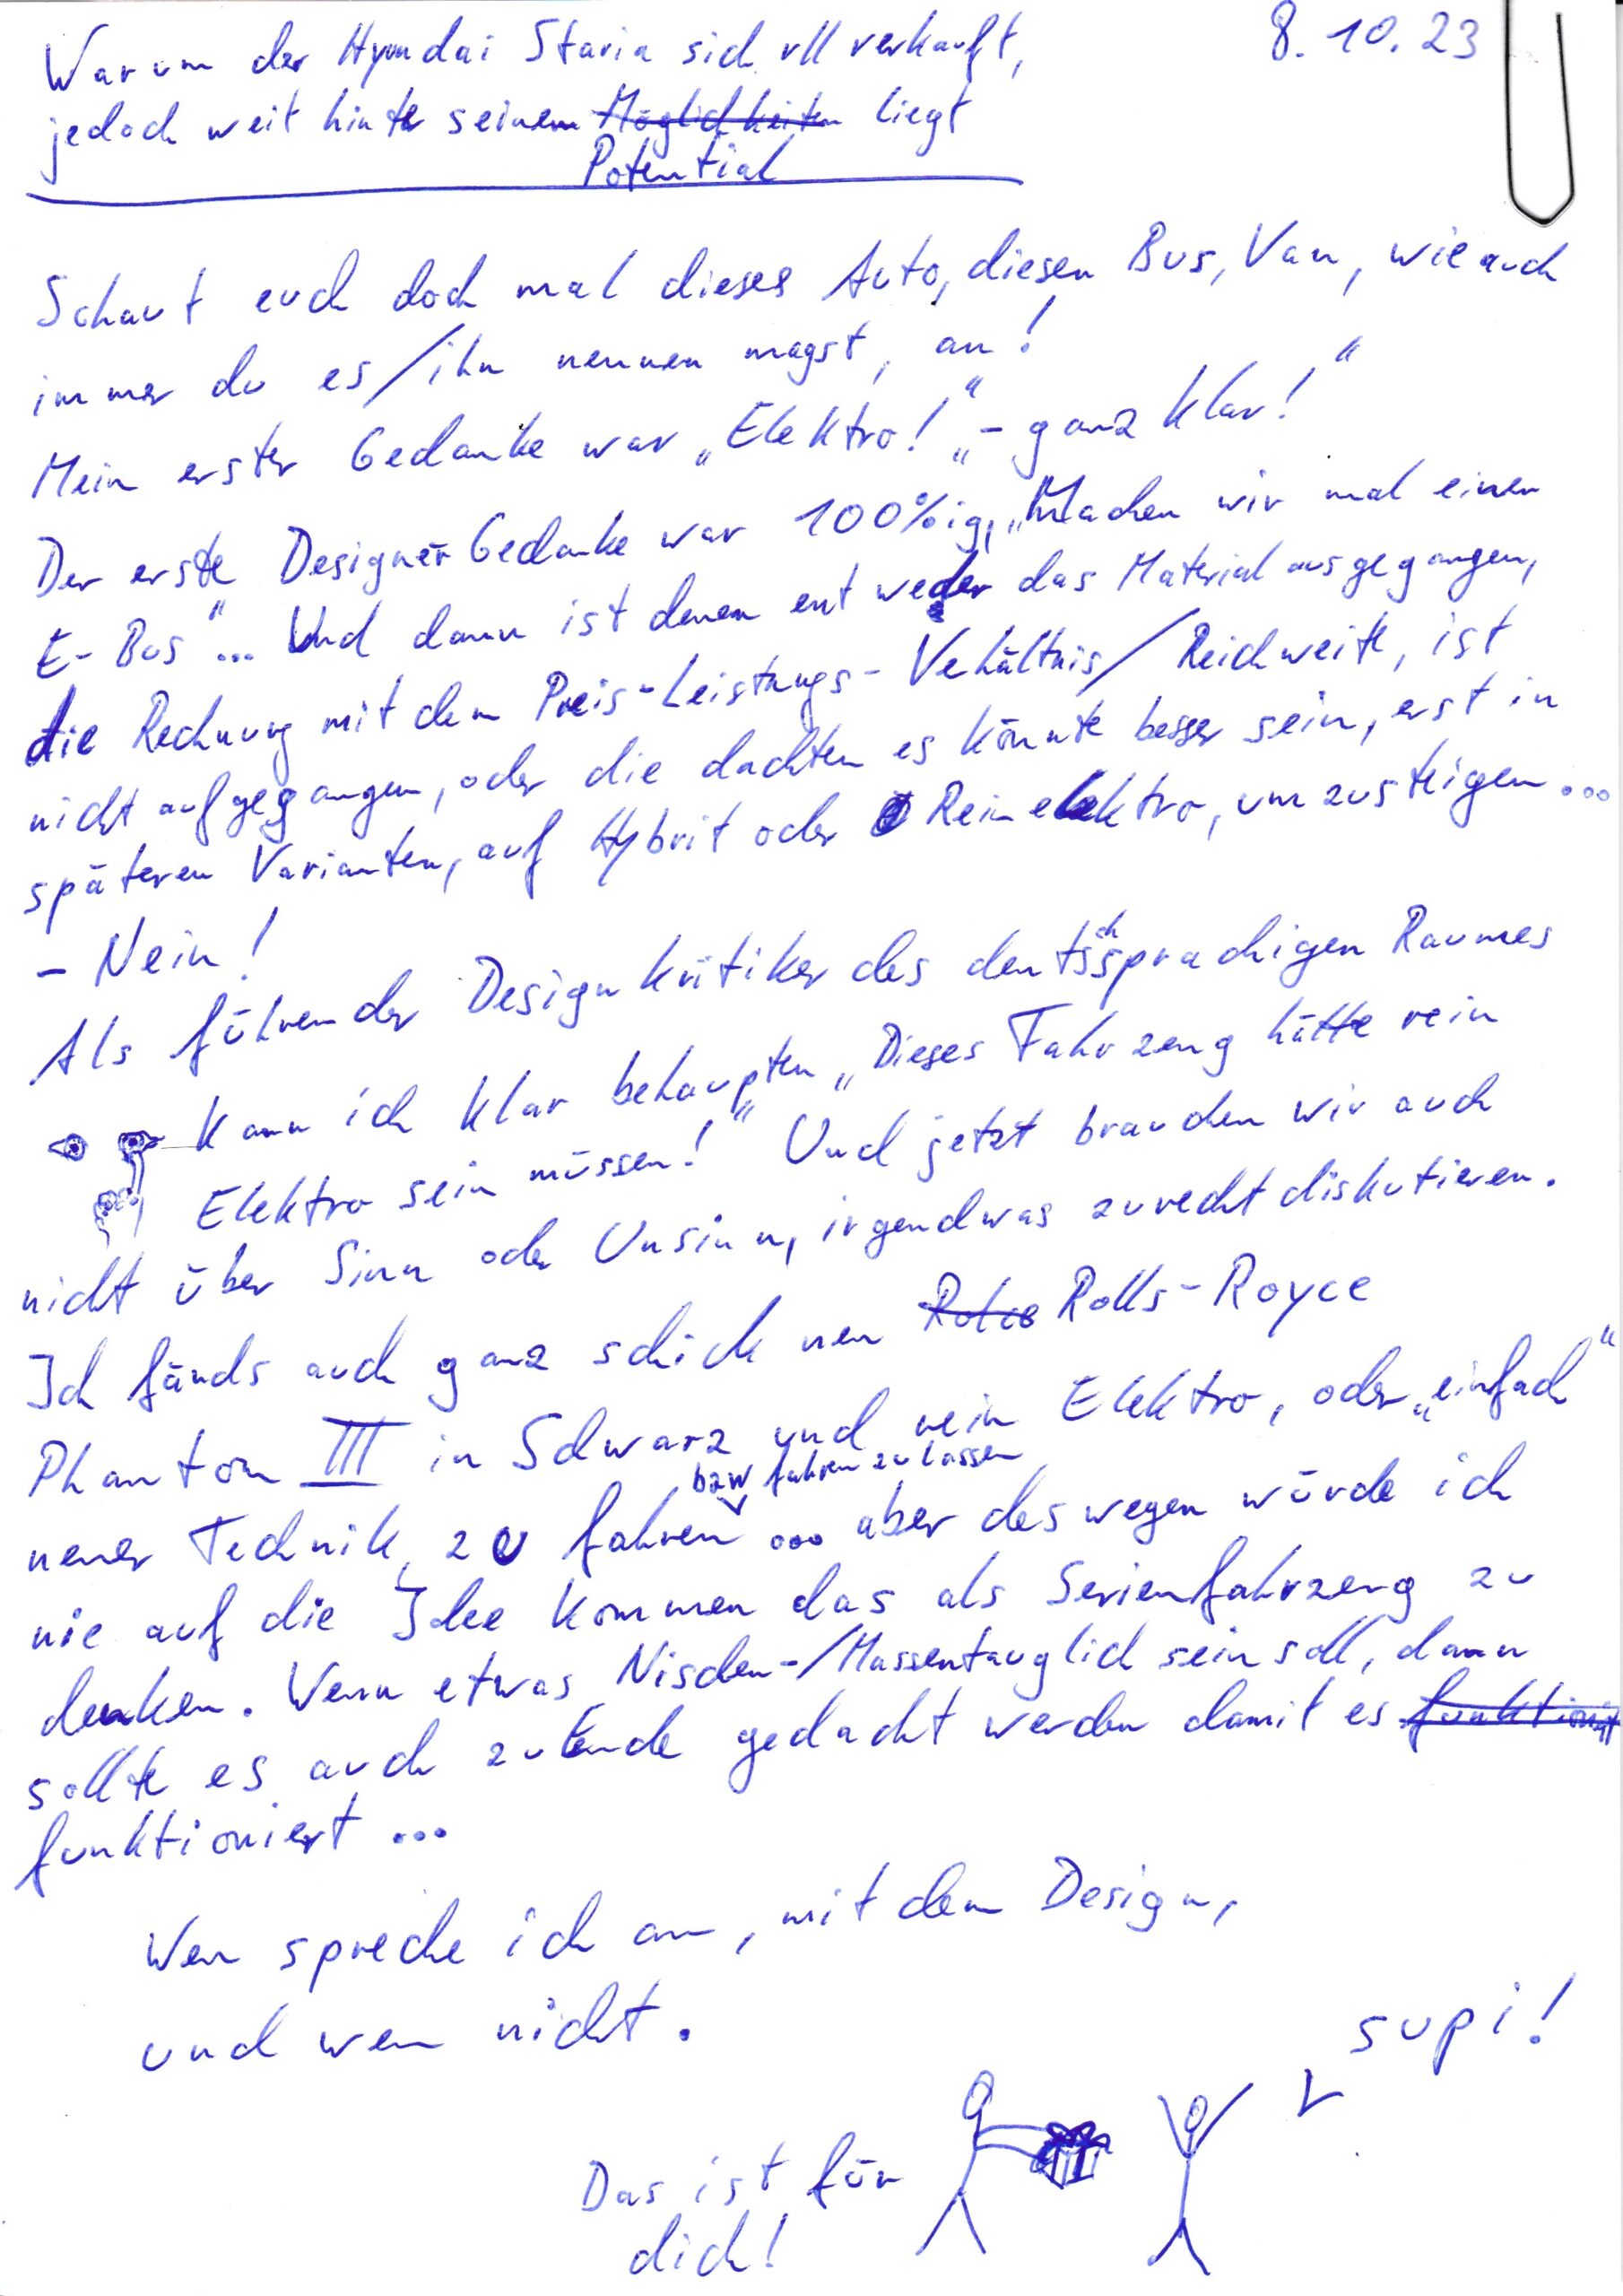 8.10.23
Warum der Hyundai Staria sich vll verkauft,
jedoch weit hinter seinem Möglichkeiten liegt
Potential
Schaut euch doch mal dieses Auto, diesen Bus, Van, wie auch
immer du es/ihn nennen magst, an!
Mein erster Gedanke war „Elektro!“ „- ganz klar!“
Der erste Designer Gedanke war 100%ig, „Machen wir mal einen
E-Bus“... Und dann ist denen entweder das Material ausgegangen,
die Rechnung mit dem Preis-Leistungs-Vehältnis/Reichweite, ist
nicht aufgegangen, oder die dachten es könnte besser sein, erst in
späteren Varianten, auf Hybrit oder Rein elektro, umzusteigen...
- Nein!
Als führender Designkritiker des deutschsprachigen Raumes
kann ich klar behaupten „Dieses Fahrzeug hätte rein
Elektro sein müssen!“ Und jetzt brauchen wir auch
nicht über Sinn oder Unsinn, irgendwas zurecht diskutieren.
Ich fänds auch ganz schick nen Rolls-Royce
Phantom III in Schwarz und rein Elektro, oder „einfach“
bzw fahren zu lassen
neuer Technik, zu fahren ... aber deswegen würde ich
nie auf die Idee kommen das als Serienfahrzeug zu
denken. Wenn etwas Nischen-/Massentauglich sein soll, dann
sollte es auch zu Ende gedacht werden damit es funktioniert
funktioniert ...
Wen spreche ich an, mit dem Design,
und wen nicht.
supi!
Das ist für
dich!